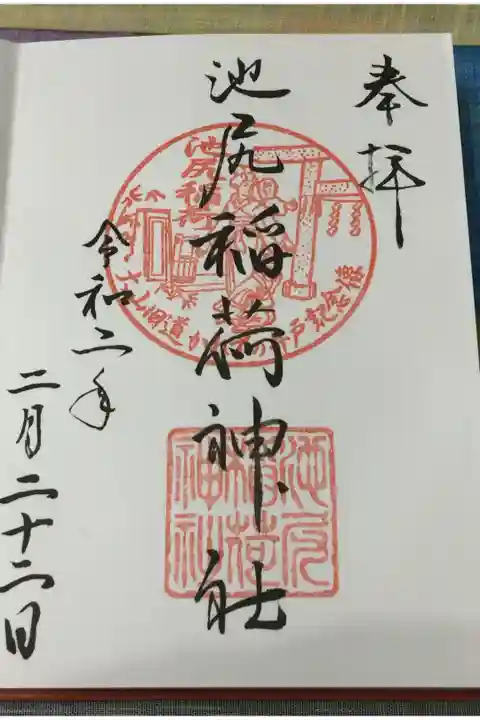 奉拝
池尻稲荷神社
令和二年
二月二十二日
池尻稲荷
大山旧道
の井戸記念
池尻稲荷神社